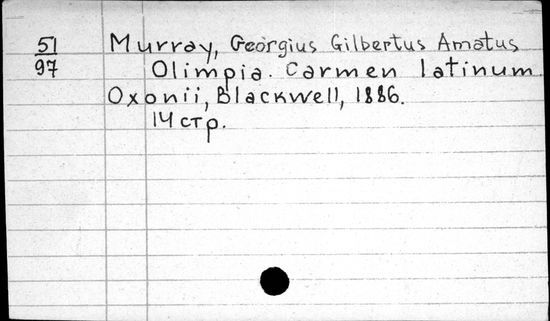 51 Murray, Georgius Gilbertus Amatus
97 Olimpia. Carmen latinum
Oxonii, Blackwell, 1886.
14 стр.